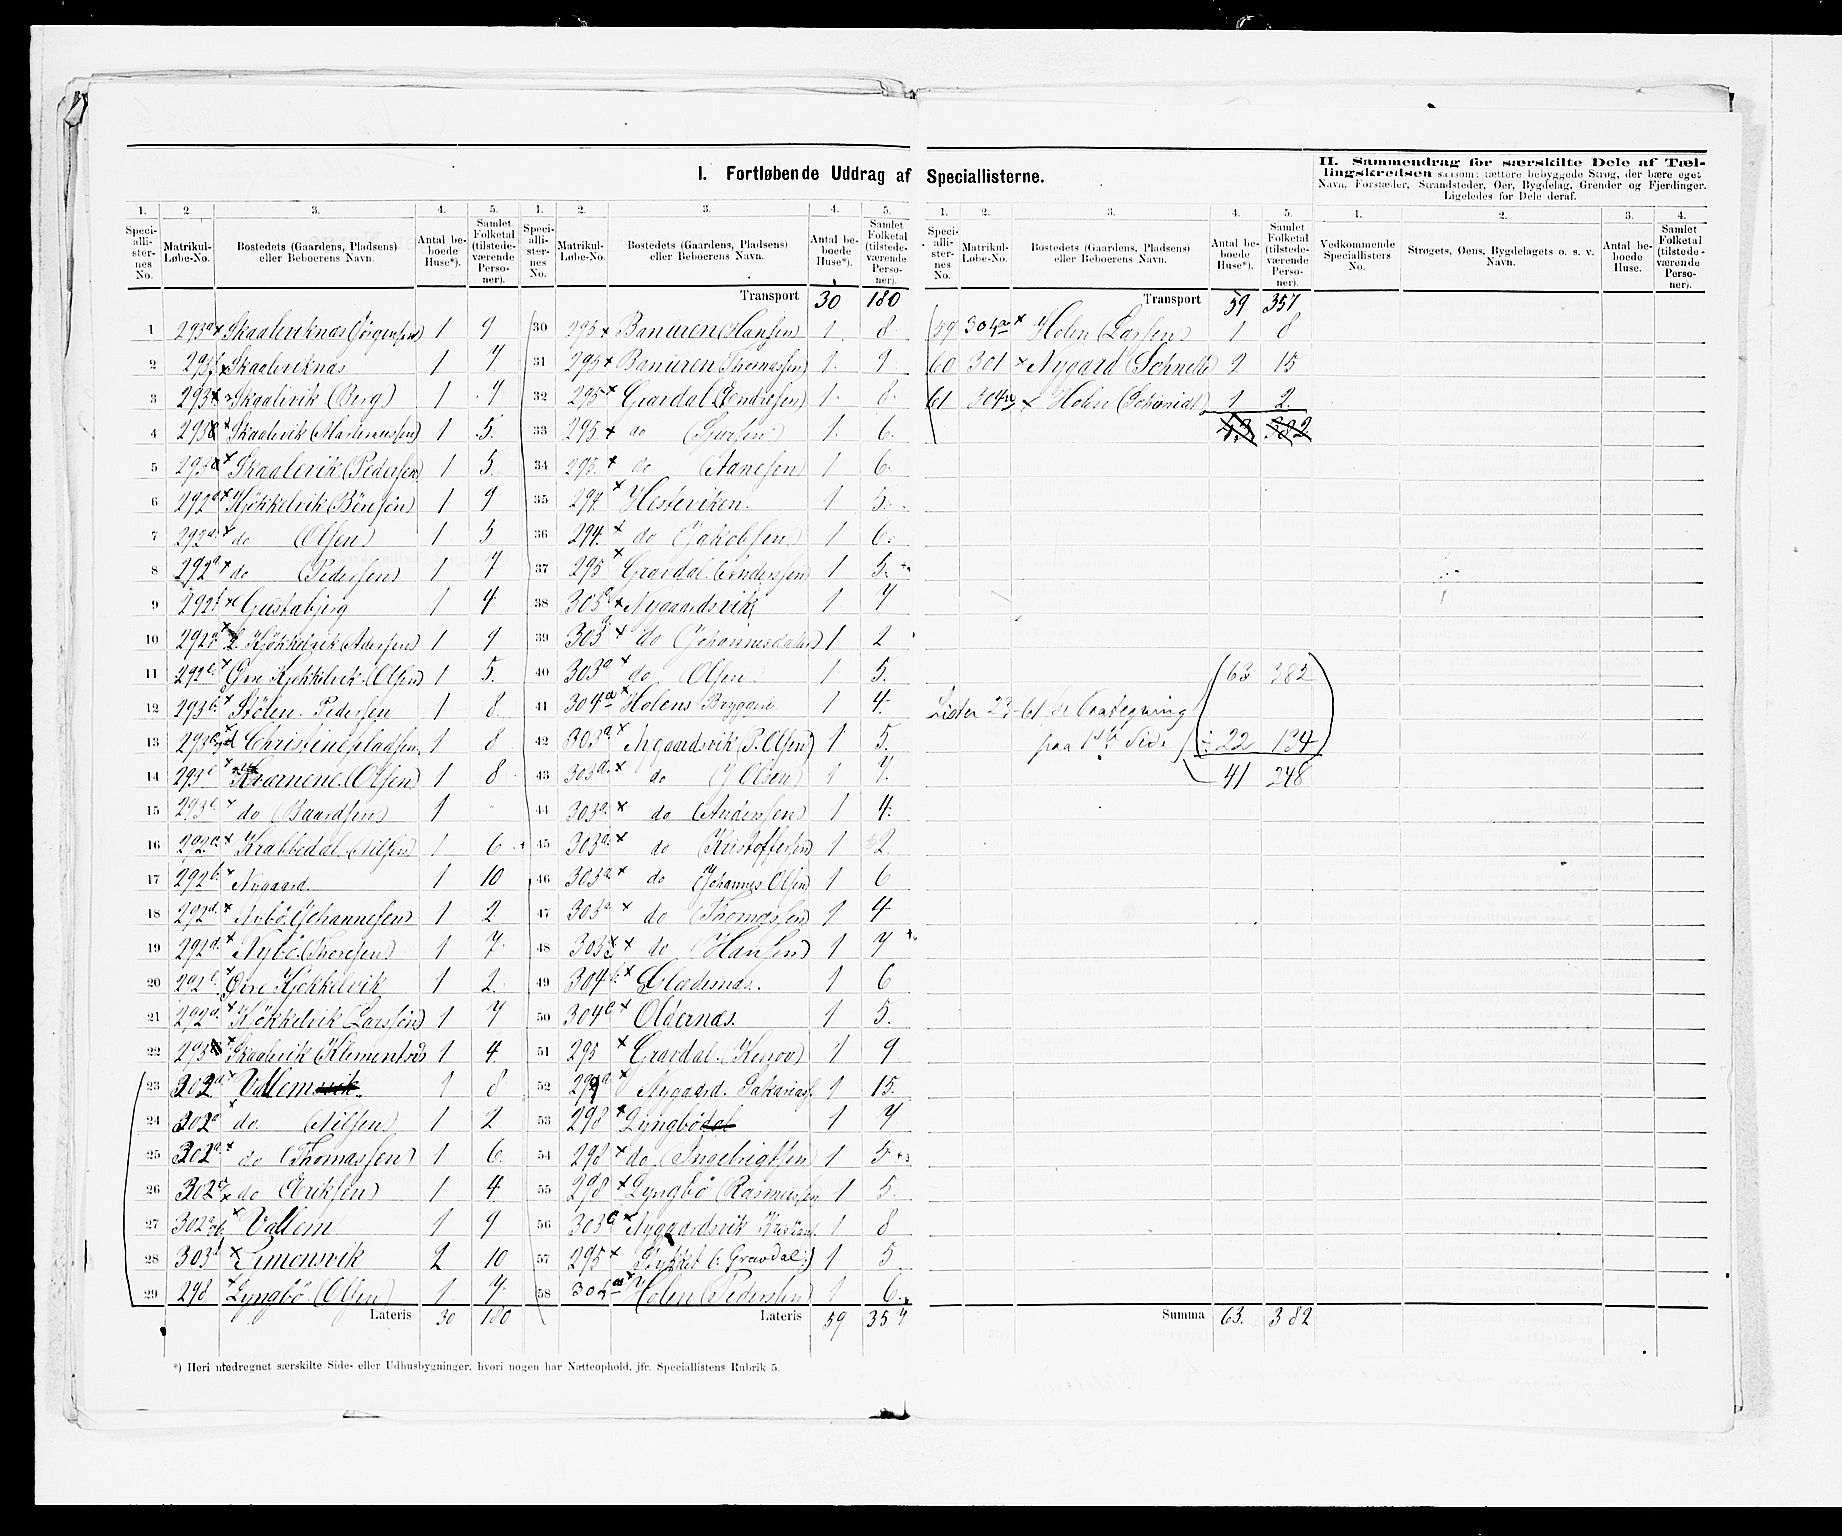 I. Fortløbende Uddrag af Speciallisterne.
II. Sammendrag for særskilte Dele af Tællingskredsen saasom: tættere bebyggede Strøg, der bære eget
Navn, Forstæder, Strandsteder, Øer, Bygdelag, Grender og Fjerdinger.
Ligeledes for Dele deraf.
1. 2 3. 4. 5.
Speciallisternes No. Matrikul-Løbe-No. Bostedets (Gaardens, Pladsens) eller Beboerens Navn. Antal beboede Huse*). Samlet Folketal (tilstedeværende Personer).
1 293a x Skaaleviknæs (Jörgensen) 1 9
2 293 x Skaaleviknæs 1 7
3 293 Skaalivik (Berg) 1 7
4 293 x Skaalevik 1 5.
5 293 x Skaalevik (Pedersen) 1 5.
6 292a x Kjökkelvik 1 9
7 292a. x do (Olsen) 1 5
8 292a x do (Pedersen) 1 7
9 292 x Gustabjerg 1 4
10 292 x Kjökkelvik 1 9
11 292b. x Övre Kjøkkelvik (Olsen) 1 5.
12 293b. x Stölen. Pedersen 1 8
13 293 Christinepladsen 1 8
14 293 x Kvarnene. (Olsen) 1 8
15 293 x do (Baardsen) 1
16 292a. x Krabbedal (Nilsen) 1 6
17 292b. x Nygaard. 1 10
18 292d. x Nybö (Johannesen) 1 2
19 292d. x Nybö (Thoresen) 1 7
20 292b x Övre Kjøkkelvik 1 2.
21 292a. x Kjökkelvik (Larssön) 1 7
22 293 x Skaalevik 1 4
23 302a x Vallem 1 8
24 302a x do. (Nilsen) 1 2
25 302a. x do (Thomassen) 1 6
26 302a x do (Eriksen) 1 4
27 302 x Vallem 1 9
28 303 x Simonsvik 2 10
29 298 x Lyngbö (Olsen) 1 7
Lateris 30 180
1. 2. 3. 4. 5.
Speciallisternes No. Matrikul-Løbe-No. Bostedets (Gaardens, Pladsens) eller Beboerens Navn. Antal beboede Huse*). Samlet Folketal (tilstedeværende Personer).
Transport 30 180
30 295 x Baneuren (Hansen) 1 8
31 295 x Baneuren (Thomassen) 1. 9
32 295 x Gravdal (Endresen) 1 8
33 295 x do 1. 6.
34 295. x do 1 6.
35 294. x Hesteviken. 1 5.
36 294. x do (Jakobsen) 1 6.
37 295 x Gravdal. (Anderssen) 1 5.
38 303 x Nygaardsvik 1 7
39 303 x do 1 2
40 303a x do Olsen. 1 5.
41 304 x Holens Bryggeri. 1 4.
42 303a x Nygaardsvik (P. Olsen) 1 5.
43 303a. x do (J Olsen) 1 7.
44 303a. x do (Andersen) 1 4.
45 303a. x do (Kristoffersen) 1 2
46 303a. x do (Johannes Olsen) 1 6
47 303a x do (Thomassen) 1 4
48 303 x do (Hansen) 1 7
49 304 x 1 6
50 304 x Oldernæs. 1 5.
51 295 x Gravdal. 1 9
52 x Nygaard. Sakarias. 1 15.
53 298 x Lyngbödal 1 7
54 298 x do (Ingebrigtsen) 1 5
55 298 x Lyngbö (Rasmussen) 1 5.
56 303a x Nygaardsvik 1 8
57 295 x Stykket (: Gravdal:) 1 5
58 304 x Holen (Pederssen) 1 6.
Lateris 59 357
1. 2. 3. 4. 5.
Speciallisternes No. Matrikul-Løbe-No. Bostedets (Gaardens, Pladsens) eller Beboerens Navn. Antal beboede Huse*). Samlet Folketal (tilstedeværende Personer).
Transport 59 357
59 304 x Holen (Larsen) 1 8
60 301 x Nygaard 2 15
61 304 x Holen 1 2
43 382
63 382
Lister 23-61 se Paategning
paa 1ste Side ÷ 22 134
41 248
Summa 63. 382
1. 2. 3. 4.
Vedkommende Speciallisters No. Strøgets, Øens, Bygdelagets o. s. v. Navn. Antal beboede Huse. Samlet Folketal (tilstedeværende Personer).
*) Heri medregnet særskilte Side- eller Udhusbygninger, hvori nogen har Natteophold, jfr. Speciallistens Rubrik 5.